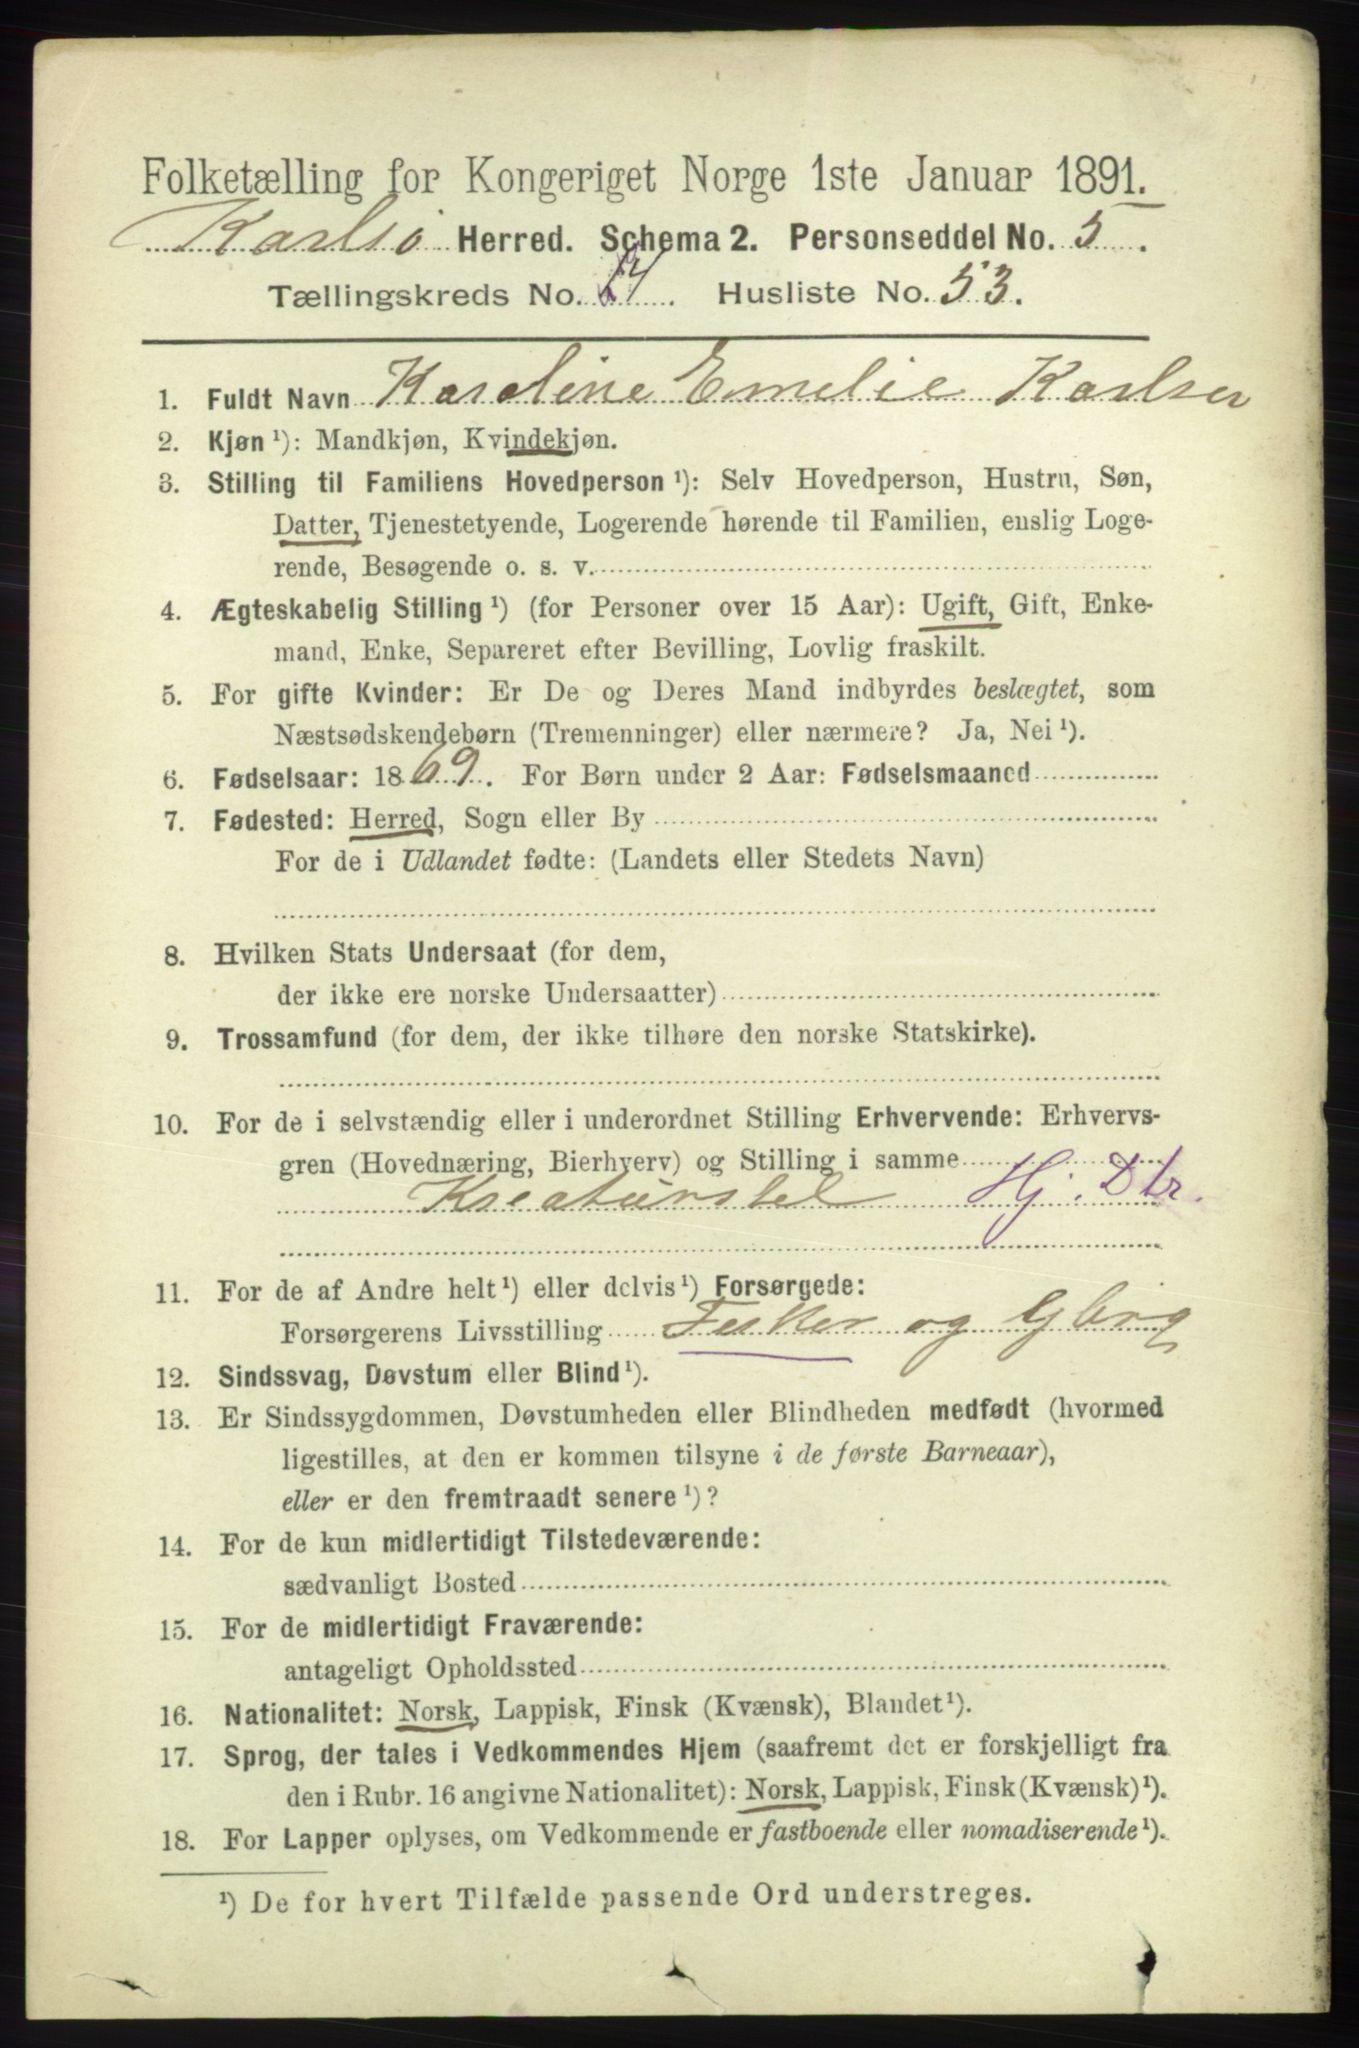 Folketælling for Kongeriget Norge 1ste Januar 1891.
Karlsø Herred. Schema 2. Personseddel No. 5.
Tællingskreds No. 14. Husliste No. 53.
1. Fuldt Navn Karoline Emelie Karlsen
2. Kjøn ¹): Mandkjøn, Kvindekjøn.
3. Stilling til Familiens Hovedperson ¹): Selv Hovedperson, Hustru, Søn,
Datter, Tjenestetyende, Logerende hørende til Familien, enslig Loge-
rende, Besøgende o. s. v.
4. Ægteskabelig Stilling ¹) (for Personer over 15 Aar): Ugift, Gift, Enke-
mand, Enke, Separeret efter Bevilling, Lovlig fraskilt.
5. For gifte Kvinder: Er De og Deres Mand indbyrdes beslægtet, som
Næstsødskendebørn (Tremenninger) eller nærmere? Ja, Nei ¹).
6. Fødselsaar: 1869. For Børn under 2 Aar: Fødselsmaaned
7. Fødested: Herred, Sogn eller By
For de i Udlandet fødte: (Landets eller Stedets Navn)
8. Hvilken Stats Undersaat (for dem,
der ikke ere norske Undersaatter)
9. Trossamfund (for dem, der ikke tilhøre den norske Statskirke).
10. For de i selvstændig eller i underordnet Stilling Erhvervende: Erhvervs-
gren (Hovednæring, Bierhverv) og Stilling i samme
Kreaturstel Hj. Dtr.
11. For de af Andre helt ¹) eller delvis ¹) Forsørgede:
Forsørgerens Livsstilling Fisker og Gbrg
12. Sindssvag, Døvstum eller Blind ¹).
13. Er Sindssygdommen, Døvstumheden eller Blindheden medfødt (hvormed
ligestilles, at den er kommen tilsyne i de første Barneaar),
eller er den fremtraadt senere ¹)?
14. For de kun midlertidigt Tilstedeværende:
sædvanligt Bosted
15. For de midlertidigt Fraværende:
antageligt Opholdssted
16. Nationalitet: Norsk, Lappisk, Finsk (Kvænsk), Blandet ¹).
17. Sprog, der tales i Vedkommendes Hjem (saafremt det er forskjelligt fra
den i Rubr. 16 angivne Nationalitet): Norsk, Lappisk, Finsk (Kvænsk) ¹).
18. For Lapper oplyses, om Vedkommende er fastboende eller nomadiserende ¹).
¹) De for hvert Tilfælde passende Ord understreges.